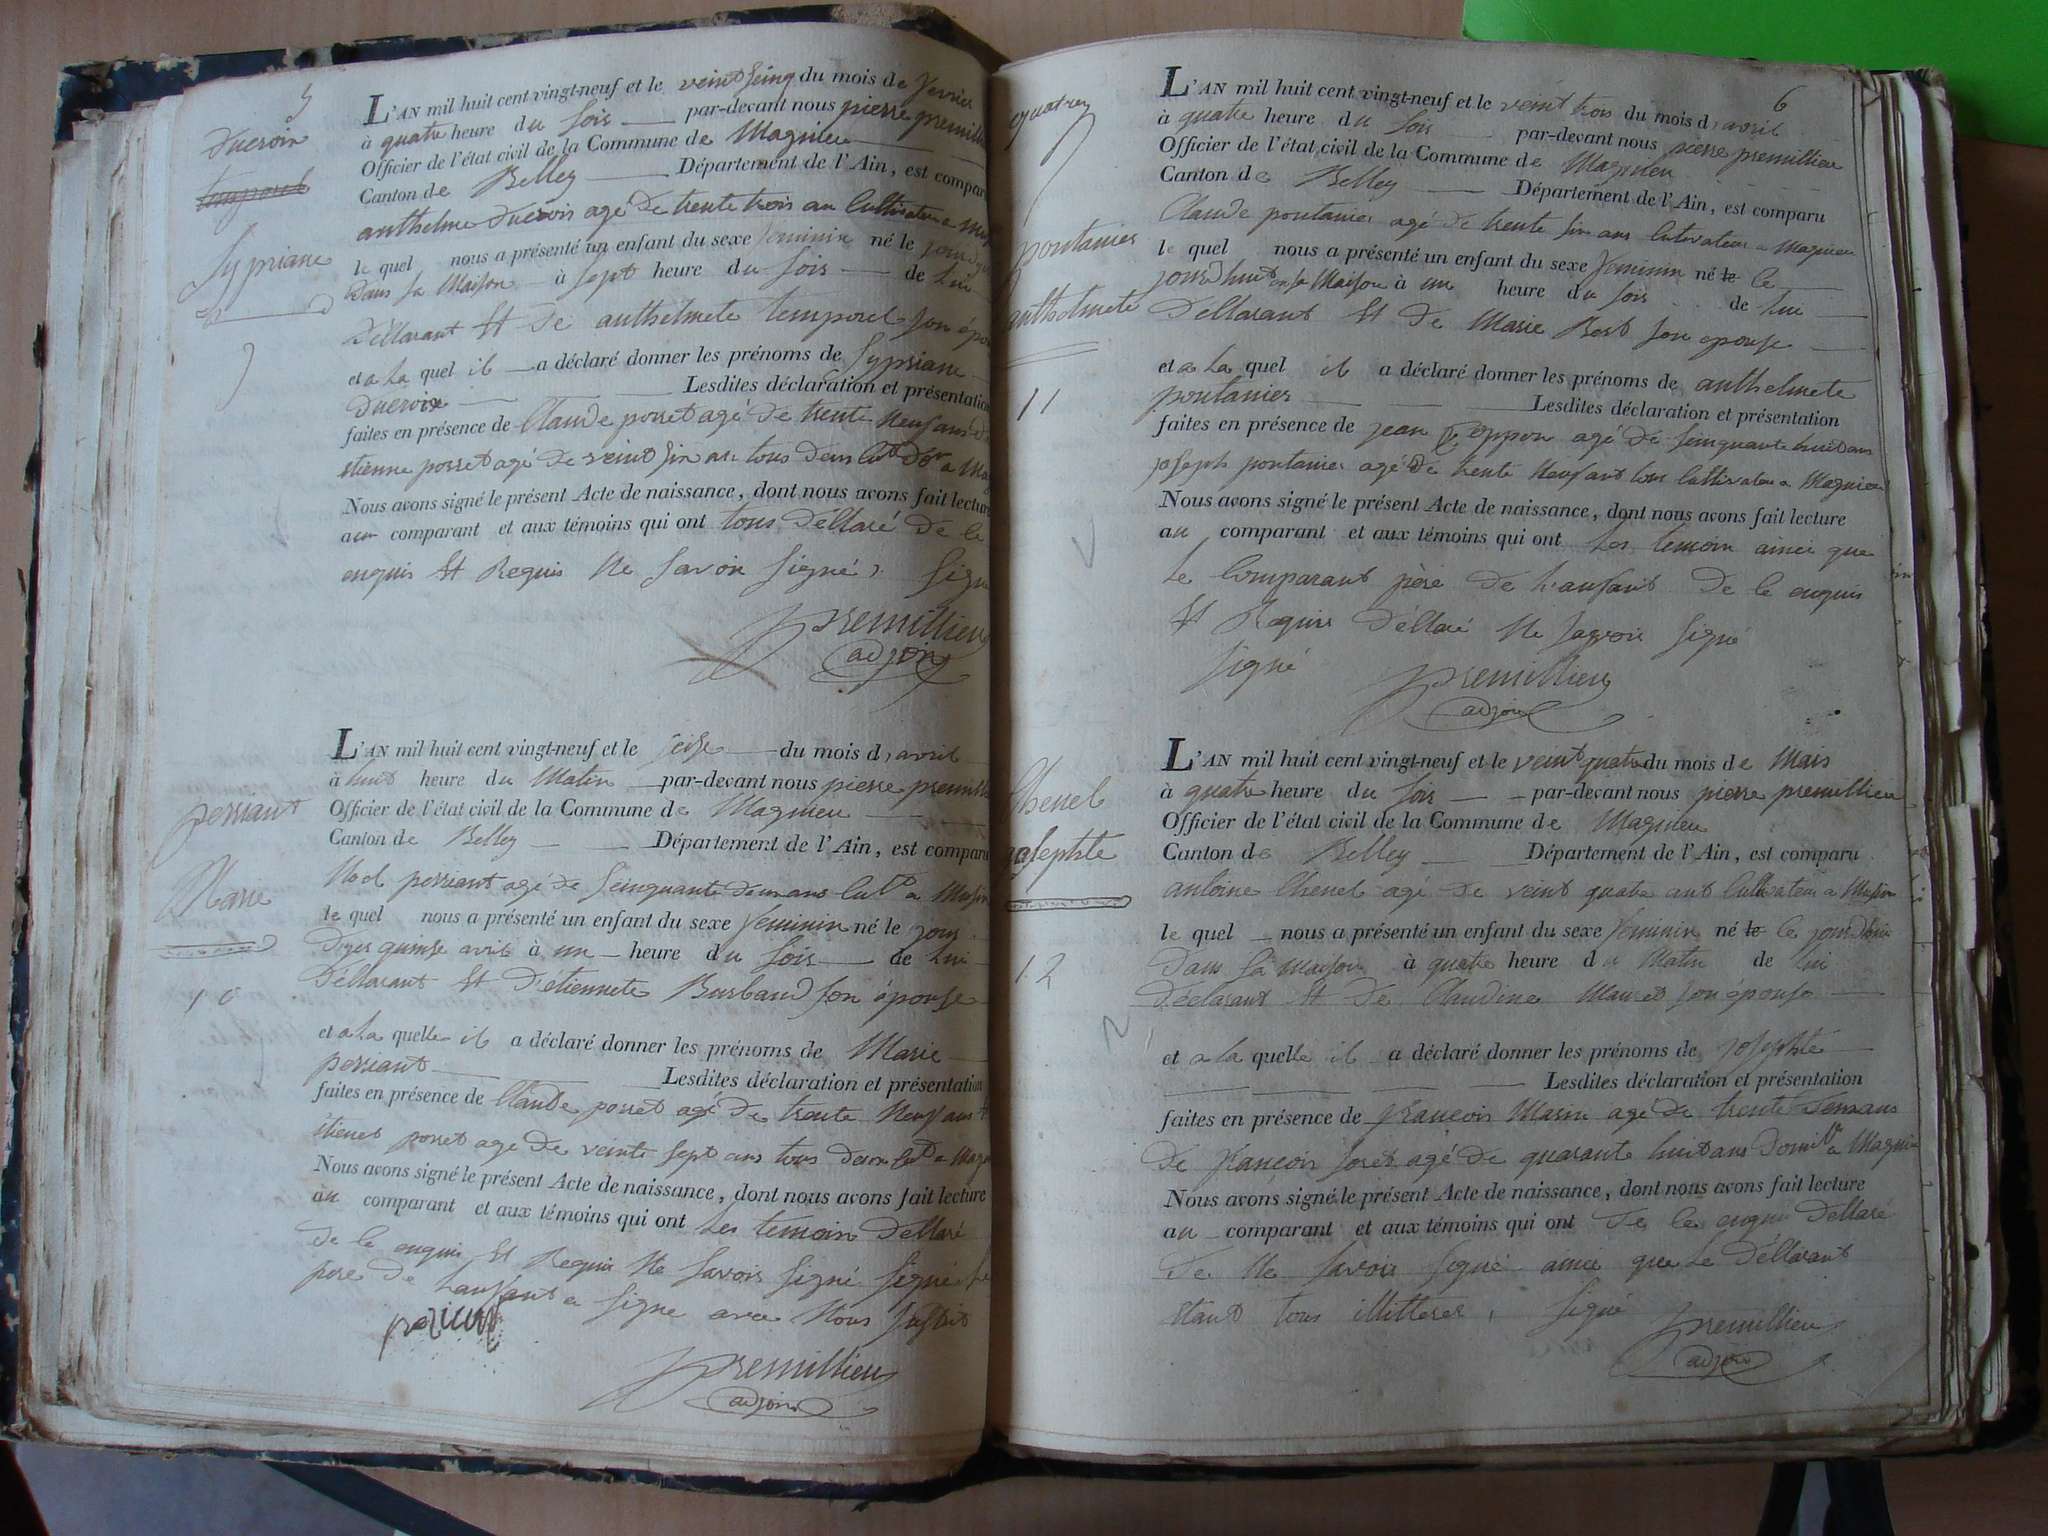 5
Ducroix
temporel
Sypriane
9
L'AN mil huit cent vingt-neuf et le veintseinq du mois de fevrier
à quatre heure du soir par-devant nous pierre premillieu
Officier de l'état civil de la Commune de Magnieu
Canton de Belley Département de l'Ain, est comparu
anthelme Ducroix agé de trente trois an Cultivateur a
le quel nous a présenté un enfant du sexe feminin né le jourdhui
Dans sa Maison à sept heure du soir de lui
Déllarant Et De anthelmete temporel son épouse
et a la quel il a déclaré donner les prénoms de Sypriane
Ducroix Lesdites déclaration et présentation
faites en présence de Claude porret agé De trente Neuf ans
etienne porret agé De veint sin an tous deux a Mag
Nous avons signé le présent Acte de naissance, dont nous avons fait lecture
au comparant et aux témoins qui ont tous Déllaré De le
enquis Et Requis Ne savoir signé signé
premillieu
adjoin
perriant
Marie
10
L'AN mil huit cent vingt-neuf et le seise du mois d, avril
à huit heure du Matin par-devant nous pierre premillieu
Officier de l'état civil de la Commune de Magnieu
Canton de Belley Département de l'Ain, est comparu
Noel perriant agé de seinquante deux ans Cult a Musin
le quel nous a présenté un enfant du sexe feminin né le jour
Dyer quinse avril à un heure du soir de lui
Déllarant Et D'étiennete Burbaud son épouse
et a la quelle il a déclaré donner les prénoms de Marie
perriant Lesdites déclaration et présentation
faites en présence de Claude porret agé De trente Neuf ans
étienet porret age De veinte sept ans tous deux a Mag
Nous avons signé le présent Acte de naissance, dont nous avons fait lecture
au comparant et aux témoins qui ont Les temoin Dellaré
De le enquis Et Requis Ne savoir signé signé Le
pere De Lanfant a signe avec Nous
premillieu
adjoin
6
pontanier
anthelmete
11
L'AN mil huit cent vingt-neuf et le veint trois du mois d, avril
à quatre heure du soir par-devant nous pierre premillieu
Officier de l'état civil de la Commune de Magnieu
Canton de Belley Département de l'Ain, est comparu
Claude pontanier agé de trente sin ans Cutivateur a Magnieu
le quel nous a présenté un enfant du sexe feminin né le ce
jourdhuit en sa Maison à un heure du soir de lui
Déllarant Et De Marie Bort son epouse
et a la quel il a déclaré donner les prénoms de anthelmete
pontanier Lesdites déclaration et présentation
faites en présence de jean agé De seinquante huit ans
joseph pontanier agé De trente Neuf ant tous Cultivateur a Magnieu
Nous avons signé le présent Acte de naissance, dont nous avons fait lecture
au comparant et aux témoins qui ont Les temoin ainci que
Le Comparant père De L'anfant De le enquis
Et Requis Déllaré Ne sagvoir signé
signé
premillieu
adjoin
Chenel
josephte
12
L'AN mil huit cent vingt-neuf et le veint quatre du mois de Mais
à quatre heure du soir par-devant nous pierre premillieu
Officier de l'état civil de la Commune de Magnieu
Canton de Belley Département de l'Ain, est comparu
antoine Chenel agé De veint quatre ant Cultivateur a Musin
le quel nous a présenté un enfant du sexe feminin né le le jourdhui
Dans sa Maison à quatre heure du Matin de lui
Déclarant Et De Claudine Mauret son épouse
et a la quelle il a déclaré donner les prénoms de josephte
Lesdites déclaration et présentation
faites en présence de françois Marin agé De trente ans
De françois foret agé De quarante huit ans a Magnieu
Nous avons signé le présent Acte de naissance, dont nous avons fait lecture
au comparant et aux témoins qui ont De le enquis Dellaré
De Ne savoir signé ainci que Le Déllarant
étant tous illitteres, signé
premillieu
adjoin